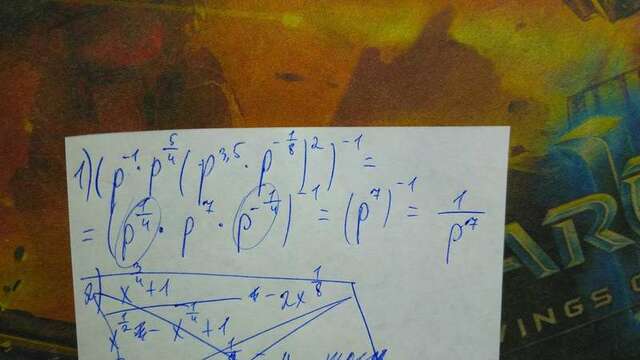 1) (p^{-1} · p^{5/4} (p^{3,5} · p^{-1/8})^2)^{-1} =
= (p^{1/4} · p^7 · p^{-1/4})^{-1} = (p^7)^{-1} = 1/p^7
x^{3/4} + 1
- 2x^{1/8}
x^{1/2} - x^{1/4} + 1
WINGS O